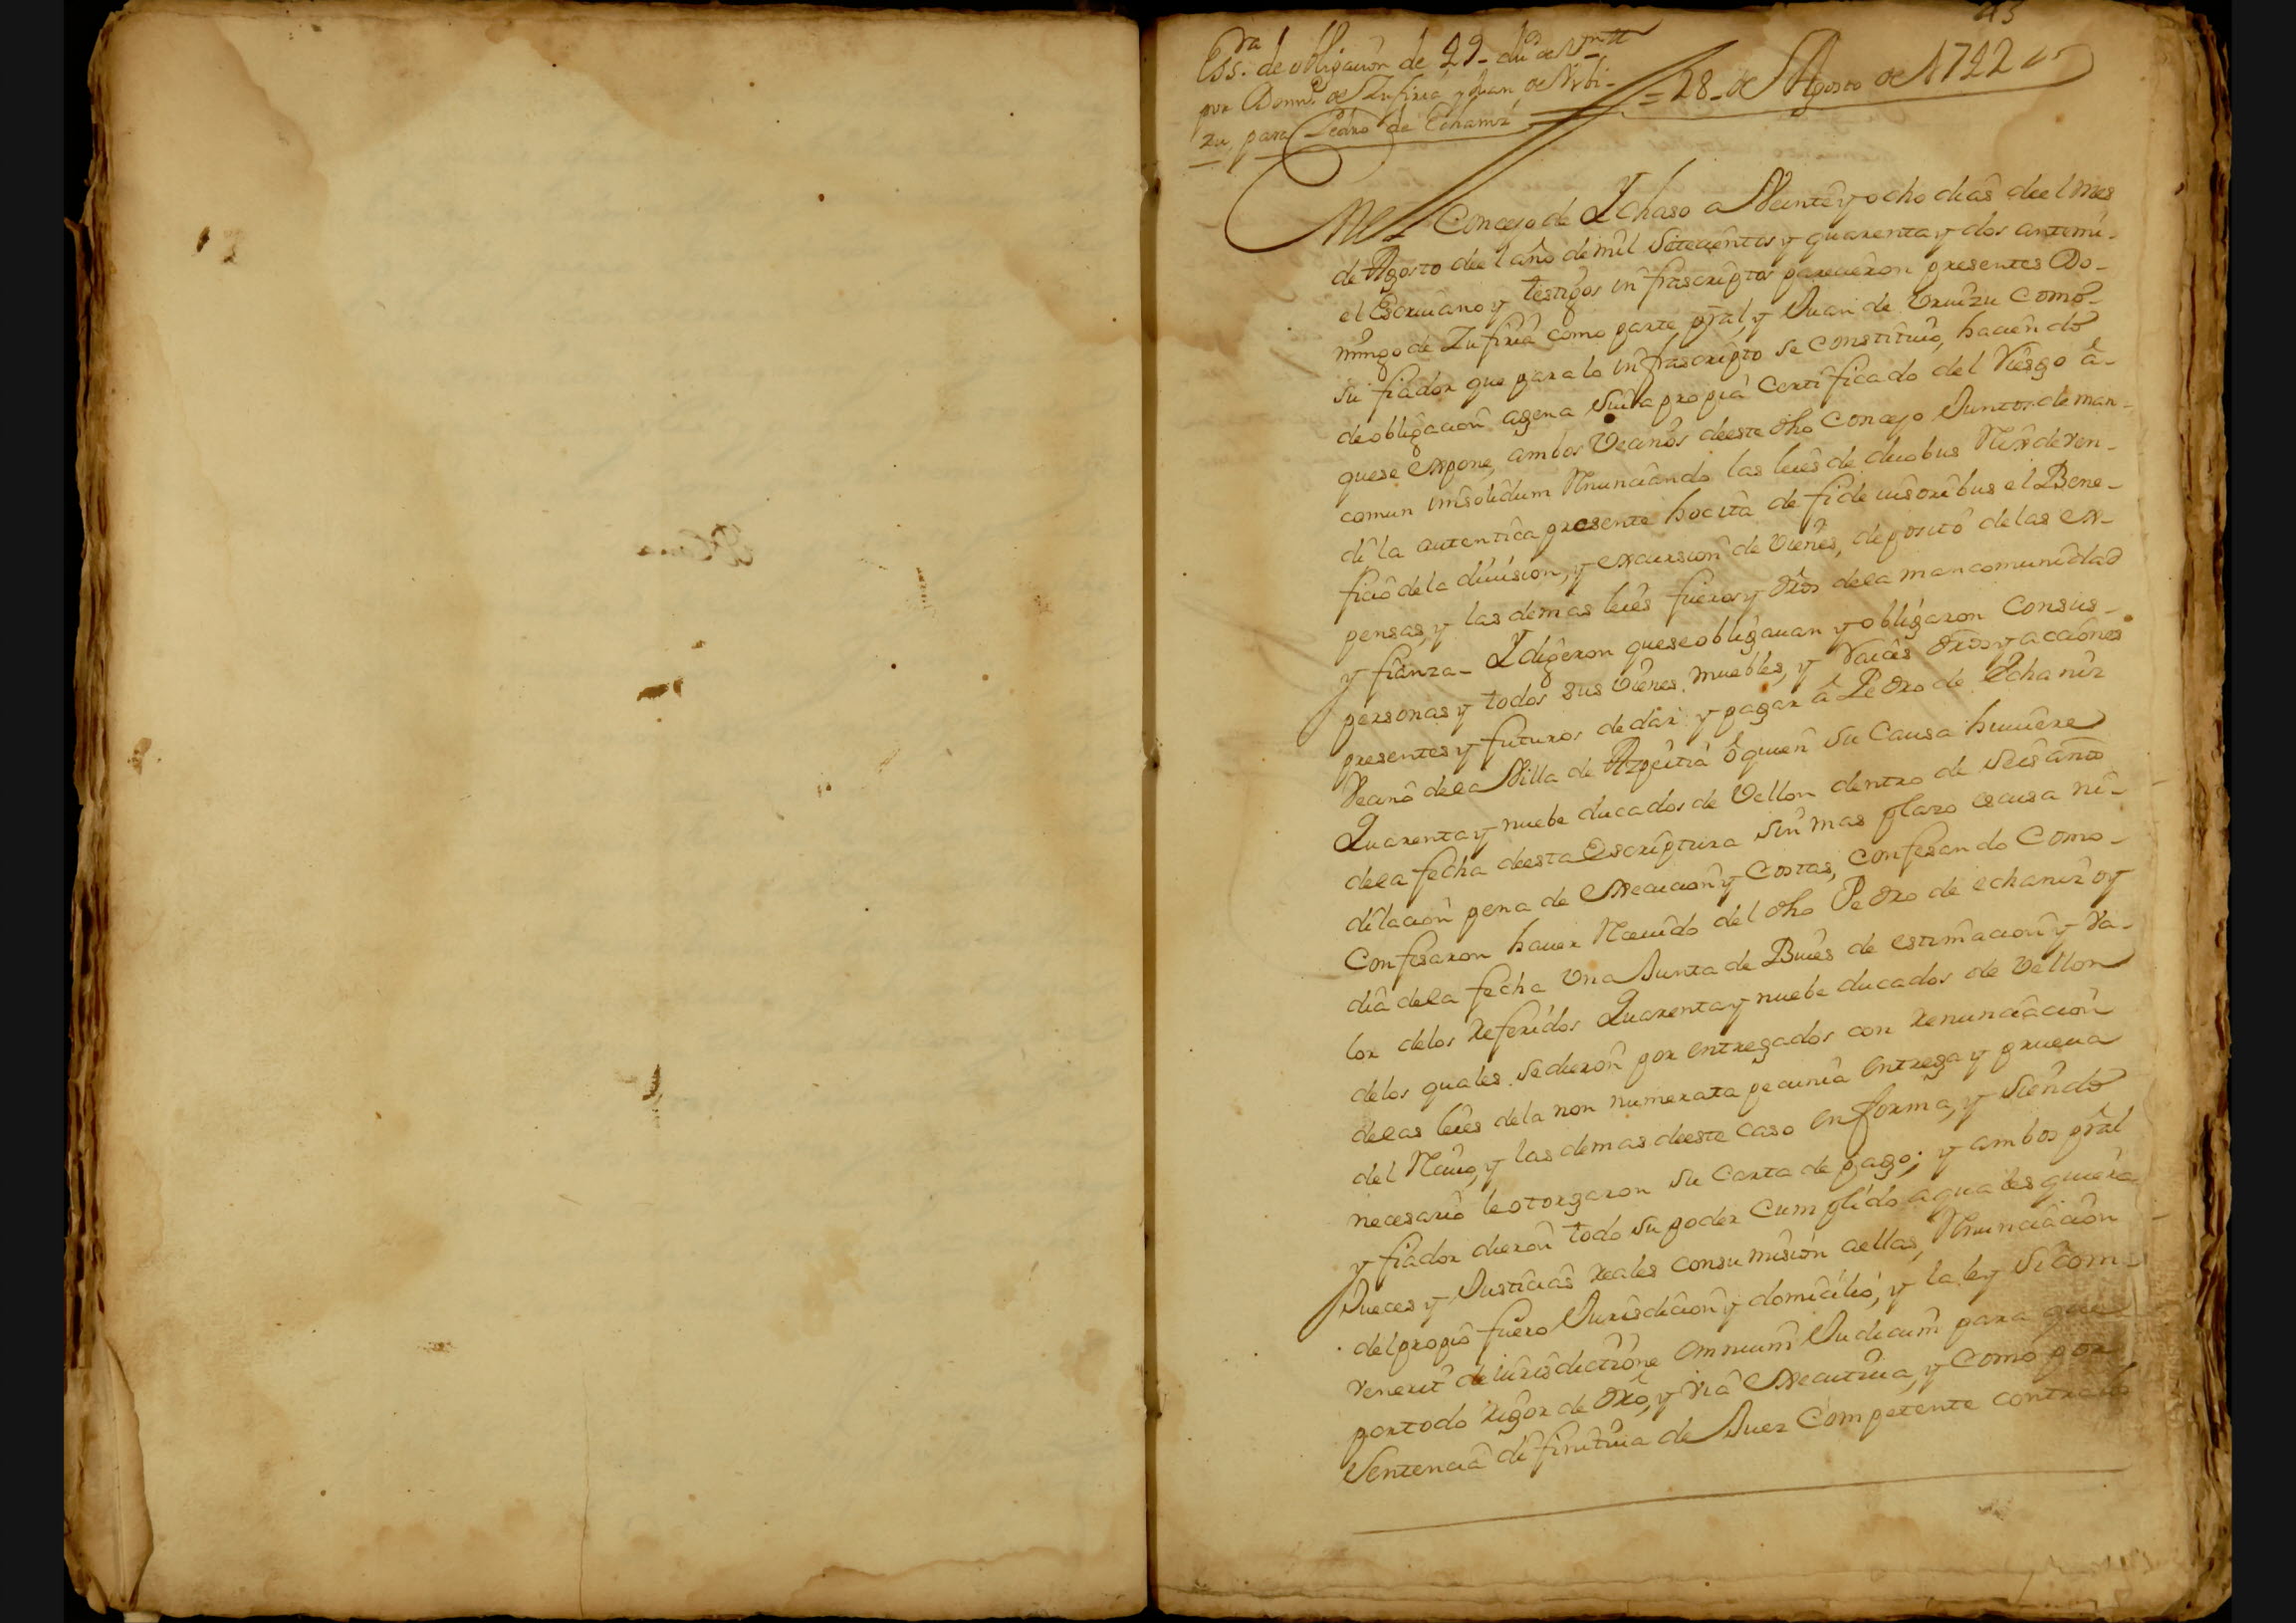 43
Ess.ra de obligacion de 49 du.os de V.on
por Domi.o de Zufiria y Juan de Urbi-
zu, para Pedro de Echaniz
= 28 de Agosto de 1742
En el Concejo de Ichaso a Veinte y ocho dias de el mes
de Agosto de el año de mil Setecientos y quarenta y dos antemi
el Escriuano y testigos infrascriptos parecieron presentes Do-
mingo de Zufiria como parte pral, y Juan de Vruizu como
su fiador que para lo infrascripto se constituio, haciendo
de obligacion agena suia propia Certificado del Riesgo â
que se expone, ambos Vecinos deeste dho Concejo Juntos de man-
comun insolidum Renunciando las leies de duobus Rex deven-
di la autentica presente hocita de fide iusoribus el Bene-
ficio de la diuision, y excursion de Vienes, deposito de las ex-
pensas, y las demas leies fueros y dros dela mancomunidad
y fianza - I digeron que se obligauan y obligaron con sus
personas y todos sus Vienes muebles, y raices dros y acciones
presentes y futuros de dar y pagar â Pedro de Echaniz
Vecino dela Villa de Azpeitia ô quien su Causa huuiere
Quarenta y nuebe ducados de Vellon dentro de seis años
dela fecha deesta Escriptura sin mas plazo escusa ni
dilacion pena de execucion y Costas, confesando Como
Confesaron hauer Receuido del dho Pedro de echaniz oy
dia dela fecha Vna Junta de Bueis de estimacion y Va-
lor delos referidos Quarenta y nuebe ducados de Vellon
delos quales se dieron por entregados con renunciacion
delas leies dela non numerata pecunia entrega y prueua
del Reciuo, y las demas deeste caso en forma, y siendo
necesario le otorgaron su Carta de pago; y ambos pral
y fiador dieron todo su poder Cumplido a quales quiera
Jueces y Justicias reales con sumision aellas, Renunciacion
del propio fuero Jurisdicion y domicilio, y la ley si com-
venerit de iurisdictione omnium Judicum para que
por todo rigor de dro, y via executiua, y como por
Sentencia difinitiua de Juez Competente contra